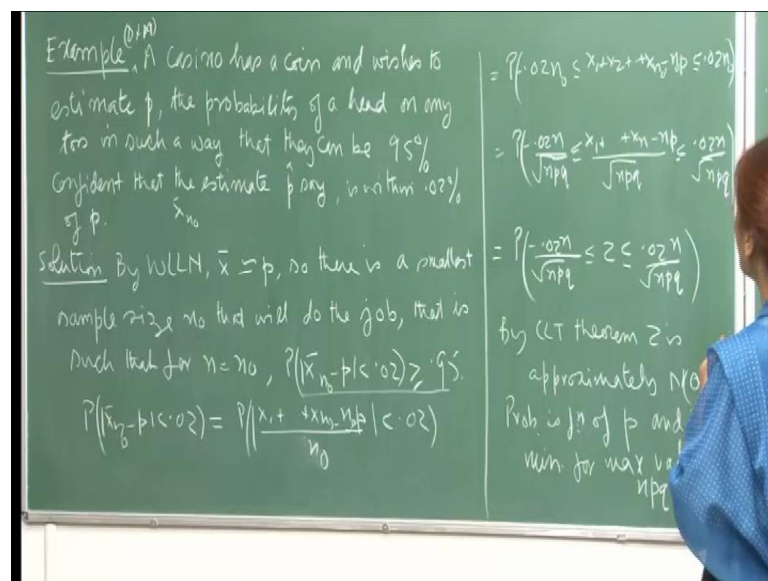 Example (D+M)
A Casino has a coin and wishes to
estimate p, the probability of a head on any
toss in such a way that they can be 95%
Confident that the estimate p̂ say, is within .02%
x̄_{n_0}
of p.
Solution By WLLN, x̄ ≃ p, so there is a smallest
sample size n_0 that will do the job, that is
such that for n = n_0, P(|x̄_{n_0} - p| < .02) ≥ .95.
P(|x̄_{n_0} - p| < .02) = P(|(x_1 + +x_{n_0} - n_0p)/n_0| < .02)
= P(-.02n_0 ≤ x_1+x_2+ +x_{n_0} - np ≤ .02n_0)
= P(-.02n/√npq ≤ (x_1+ +x_n - np)/√npq ≤ .02n/√npq)
= P(-.02n/√npq ≤ Z ≤ .02n/√npq)
By CLT theorem Z is
approximately N(0
Prob is fn of p and
min. for max val
npq